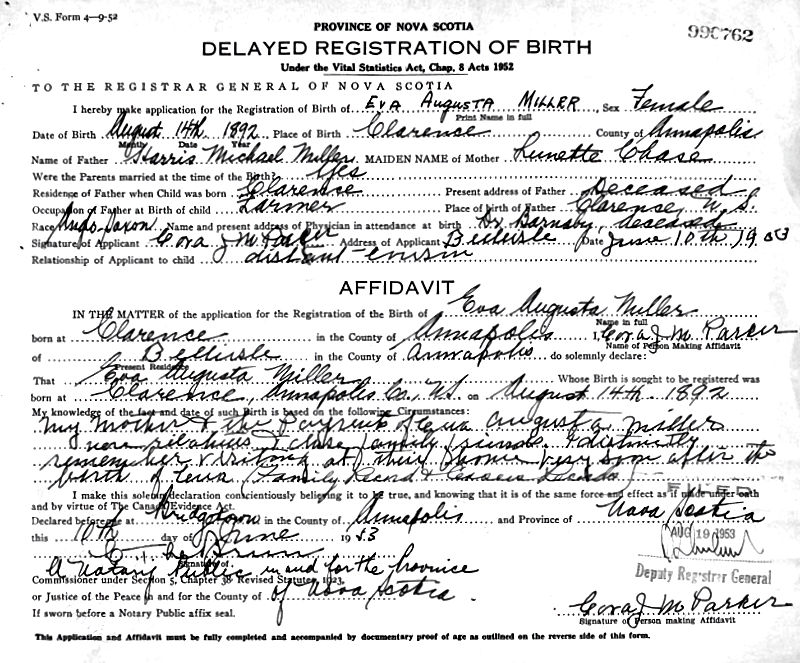 V.S. Form 4—9-52
990762
PROVINCE OF NOVA SCOTIA
DELAYED REGISTRATION OF BIRTH
Under the Vital Statistics Act, Chap. 8 Acts 1952
TO THE REGISTRAR GENERAL OF NOVA SCOTIA
I hereby make application for the Registration of Birth of EVA AUGUSTA MILLER, Sex Female
Print Name in full
Date of Birth August 14th 1892, Place of Birth Clarence County of Annapolis
Month Date Year
Name of Father Harris Michael Miller MAIDEN NAME of Mother Lunette Chase
Were the Parents married at the time of the Birth? Yes
Residence of Father when Child was born Clarence Present address of Father Deceased
Occupation of Father at Birth of child Farmer Place of birth of Father Clarence, N.S.
Race Anglo Saxon Name and present address of Physician in attendance at birth Dr Barnaby, deceased
Signature of Applicant Cora J M Parker Address of Applicant Belleisle Date June 10th 1953
Relationship of Applicant to child distant cousin
AFFIDAVIT
IN THE MATTER of the application for the Registration of the Birth of Eva Augusta Miller
Name in full
born at Clarence in the County of Annapolis I, Cora J M Parker
Name of Person Making Affidavit
of Belleisle in the County of Annapolis do solemnly declare:
Present Residence
That Eva Augusta Miller Whose Birth is sought to be registered was
born at Clarence, Annapolis Co., N.S. on August 14th 1892
My knowledge of the fact and date of such Birth is based on the following Circumstances:
My mother & the Parents of Eva Augusta Miller
were relatives & close family friends. I distinctly
remember visiting at their home very soon after the
birth of Eva (Family Record & Census Records)
I make this solemn declaration conscientiously believing it to be true, and knowing that it is of the same force and effect as if made under oath
and by virtue of The Canada Evidence Act.
FILED
Declared before me at Bridgetown in the County of Annapolis and Province of Nova Scotia
this 10th day of June 1953
AUG 19 1953
Signature of
A Notary Public in and for the Province
Deputy Registrar General
Commissioner under Section 5, Chapter 38 Revised Statutes, 1923,
or Justice of the Peace in and for the County of of Nova Scotia.
If sworn before a Notary Public affix seal.
Cora J M Parker
Signature of Person making Affidavit
This Application and Affidavit must be fully completed and accompanied by documentary proof of age as outlined on the reverse side of this form.